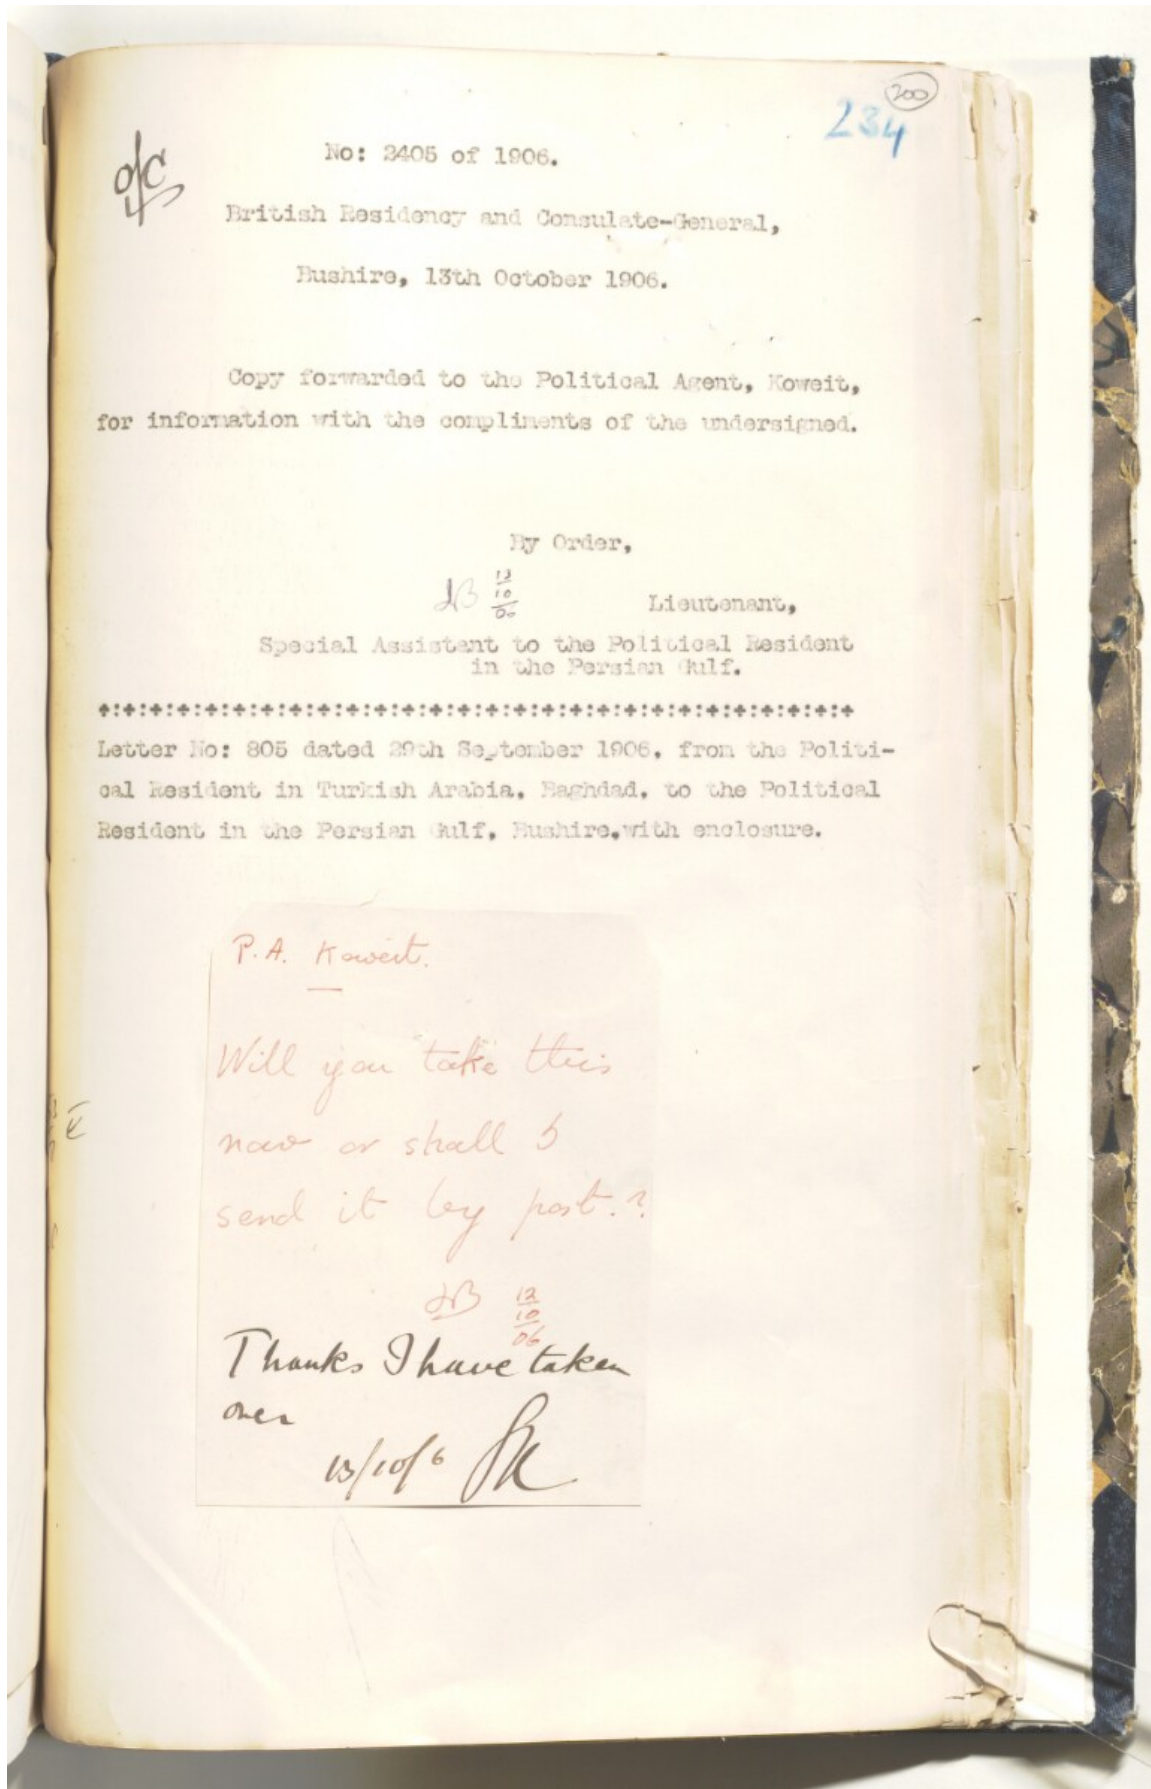 200
234
No: 2405 of 1906.
British Residency and Consulate-General,
Bushire, 13th October 1906.
Copy forwarded to the Political Agent, Koweit,
for information with the compliments of the undersigned.
By Order,
13
10
06
Lieutenant,
Special Assistant to the Political Resident
in the Persian Gulf.
Letter No: 805 dated 29th September 1906, from the Politi-
cal Resident in Turkish Arabia, Baghdad, to the Political
Resident in the Persian Gulf, Bushire, with enclosure.
P.A. Koweit.
Will you take this
now or shall I
send it by post.?
12
10
06
Thanks I have taken
over
13/10/6 SK